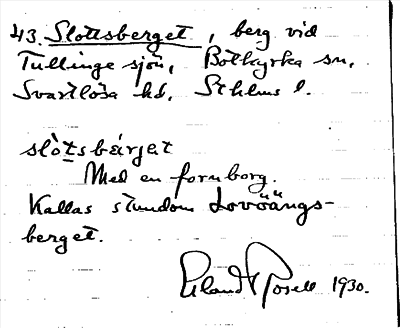 43. Slottsberget, berg vid
Tullinge sjön, Botkyrka sn,
Svartlösa hd, Sthlms l.
slòt̲sbǽrjet
Med en fornborg.
Kallas stundom Lovöängs-
berget.
Erland Rosell 1930.